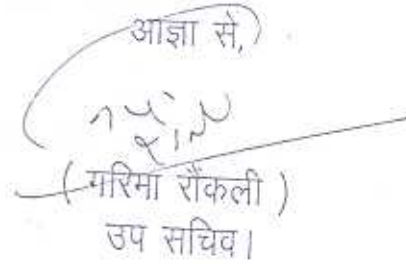 आज्ञा से,
( गरिमा रौंकली )
उप सचिव।